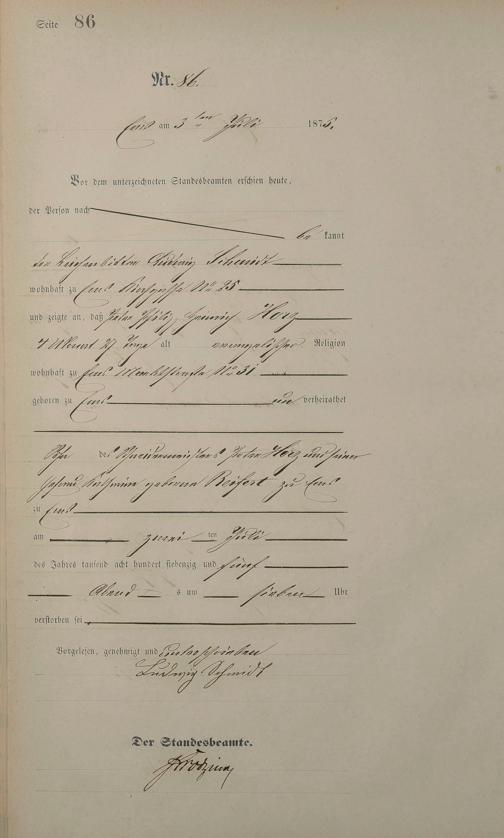 Seite 86
Nr. 86.
Ems am 3ten Juli 1875.
Vor dem unterzeichneten Standesbeamten erschien heute,
der Person nach
bekannt
der Leichenbitter Ludwig Schmidt
wohnhaft zu Ems No 25
und zeigte an, daß Peter Heinrich Herz
4 Monat 27 Tage alt evangelischer Religion
wohnhaft zu Ems No 31
geboren zu Ems unverheirathet
Sohn des Schreinermeisters Peter Herz und seiner
geborene Reifert zu Ems
zu Ems
am zwei ten Juli
des Jahres tausend acht hundert siebenzig und fünf
Abend s um sieben Uhr
verstorben sei.
Vorgelesen, genehmigt und unterschrieben
Ludwig Schmidt
Der Standesbeamte.